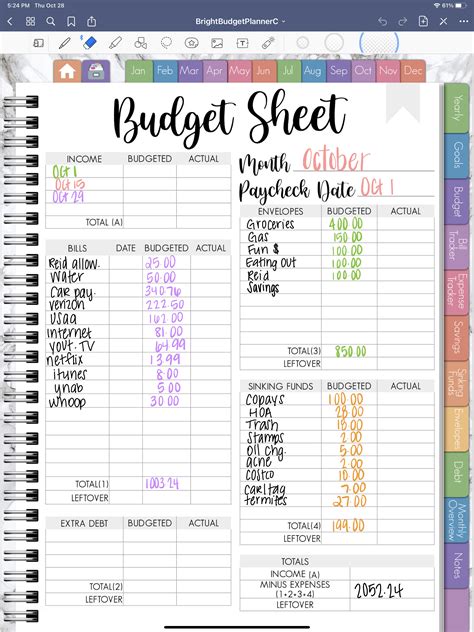 5:24 PM Thu Oct 28
61%
BrightBudgetPlannerC
Jan Feb Mar Apr May Jun Jul Aug Sep Oct Nov Dec
Budget Sheet
INCOME BUDGETED ACTUAL
Oct 1
Oct 15
Oct 29
TOTAL (A)
BILLS DATE BUDGETED ACTUAL
Reid allow. 25.00
Water 50.00
Car pay. 340.76
verizon 222.50
usaa 162.00
internet 81.00
yout. TV 64.99
netflix 13.99
itunes 8.00
ynab 5.00
whoop 30.00
TOTAL(1) 1003.24
LEFTOVER
EXTRA DEBT BUDGETED ACTUAL
TOTAL(2)
LEFTOVER
Month October
Paycheck Date Oct 1
ENVELOPES BUDGETED ACTUAL
Groceries 400.00
Gas 150.00
Fun $ 100.00
Eating Out 100.00
Reid 100.00
Savings
TOTAL(3) 850.00
LEFTOVER
SINKING FUNDS BUDGETED ACTUAL
copays 100.00
HOA 28.00
Trash 15.00
Stamps 2.00
Oil chg. 5.00
acne 2.00
costco 10.00
car tag
termites 27.00
TOTAL(4) 199.00
LEFTOVER
TOTALS
INCOME (A)
MINUS EXPENSES
(1+2+3+4) 2052.24
LEFTOVER
Yearly
Goals
Budget
Bill Tracker
Expense Tracker
Savings
Sinking Funds
Envelopes
Debt
Monthly Overview
Notes